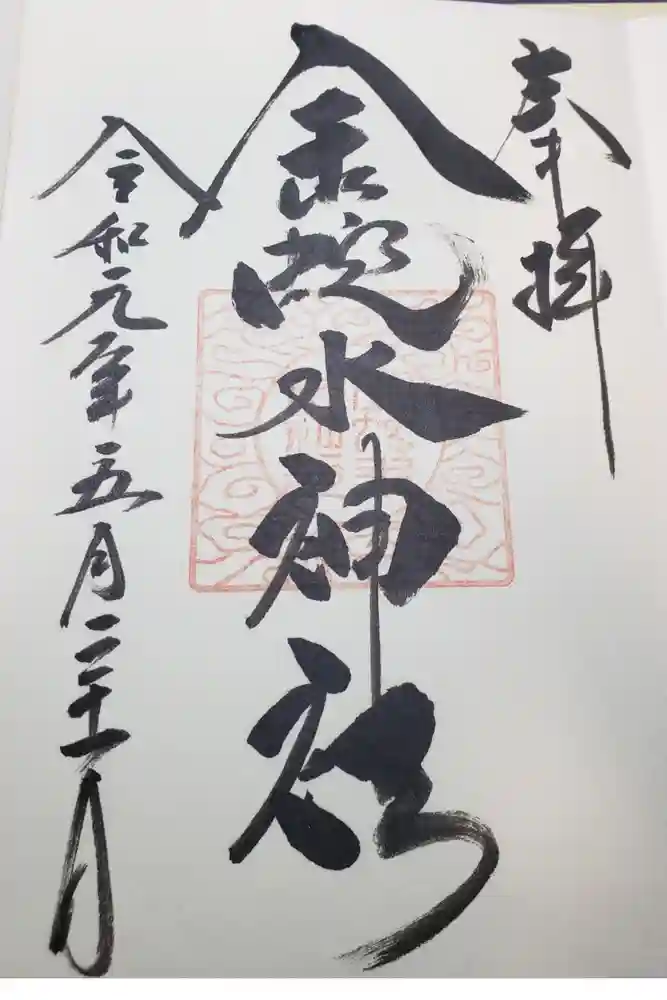 奉拝
金蛇水神社
令和元年五月二十一日